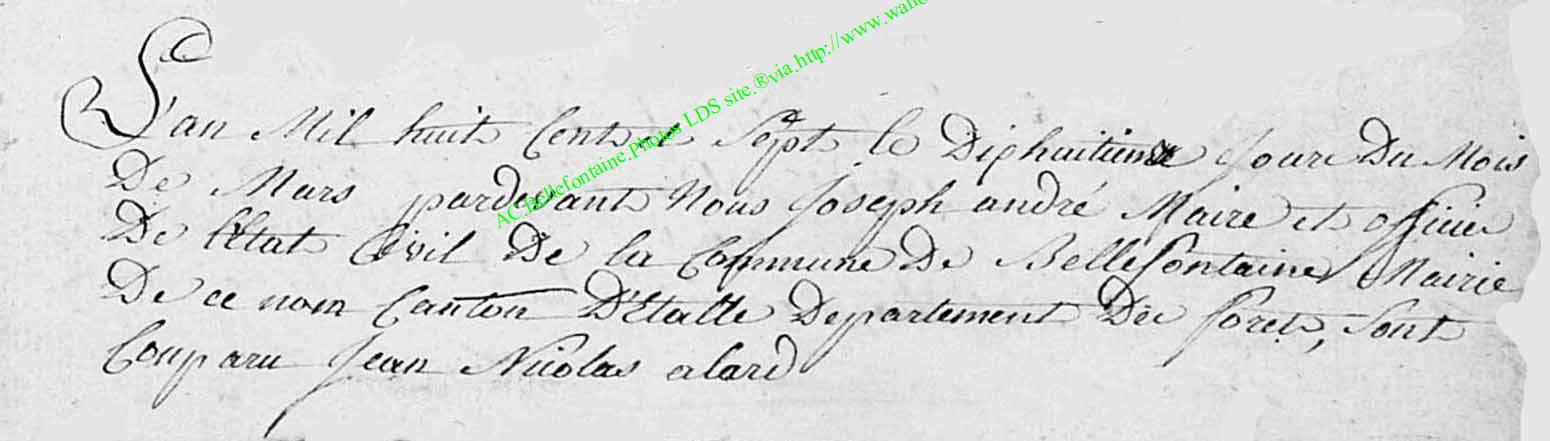 L'an Mil huit Cent et Sept le Dixhuitieme Jour Du Mois
De Mars pardevant Nous Joseph andré Maire et officier
De l'Etat Civil De la Commune De Bellefontaine Mairie
De ce nom Canton D'Etalle Departement Des forets, Sont
Comparu Jean Nicolas alard
AC.Bellefontaine.Photos LDS site.®via.http://www.wallo